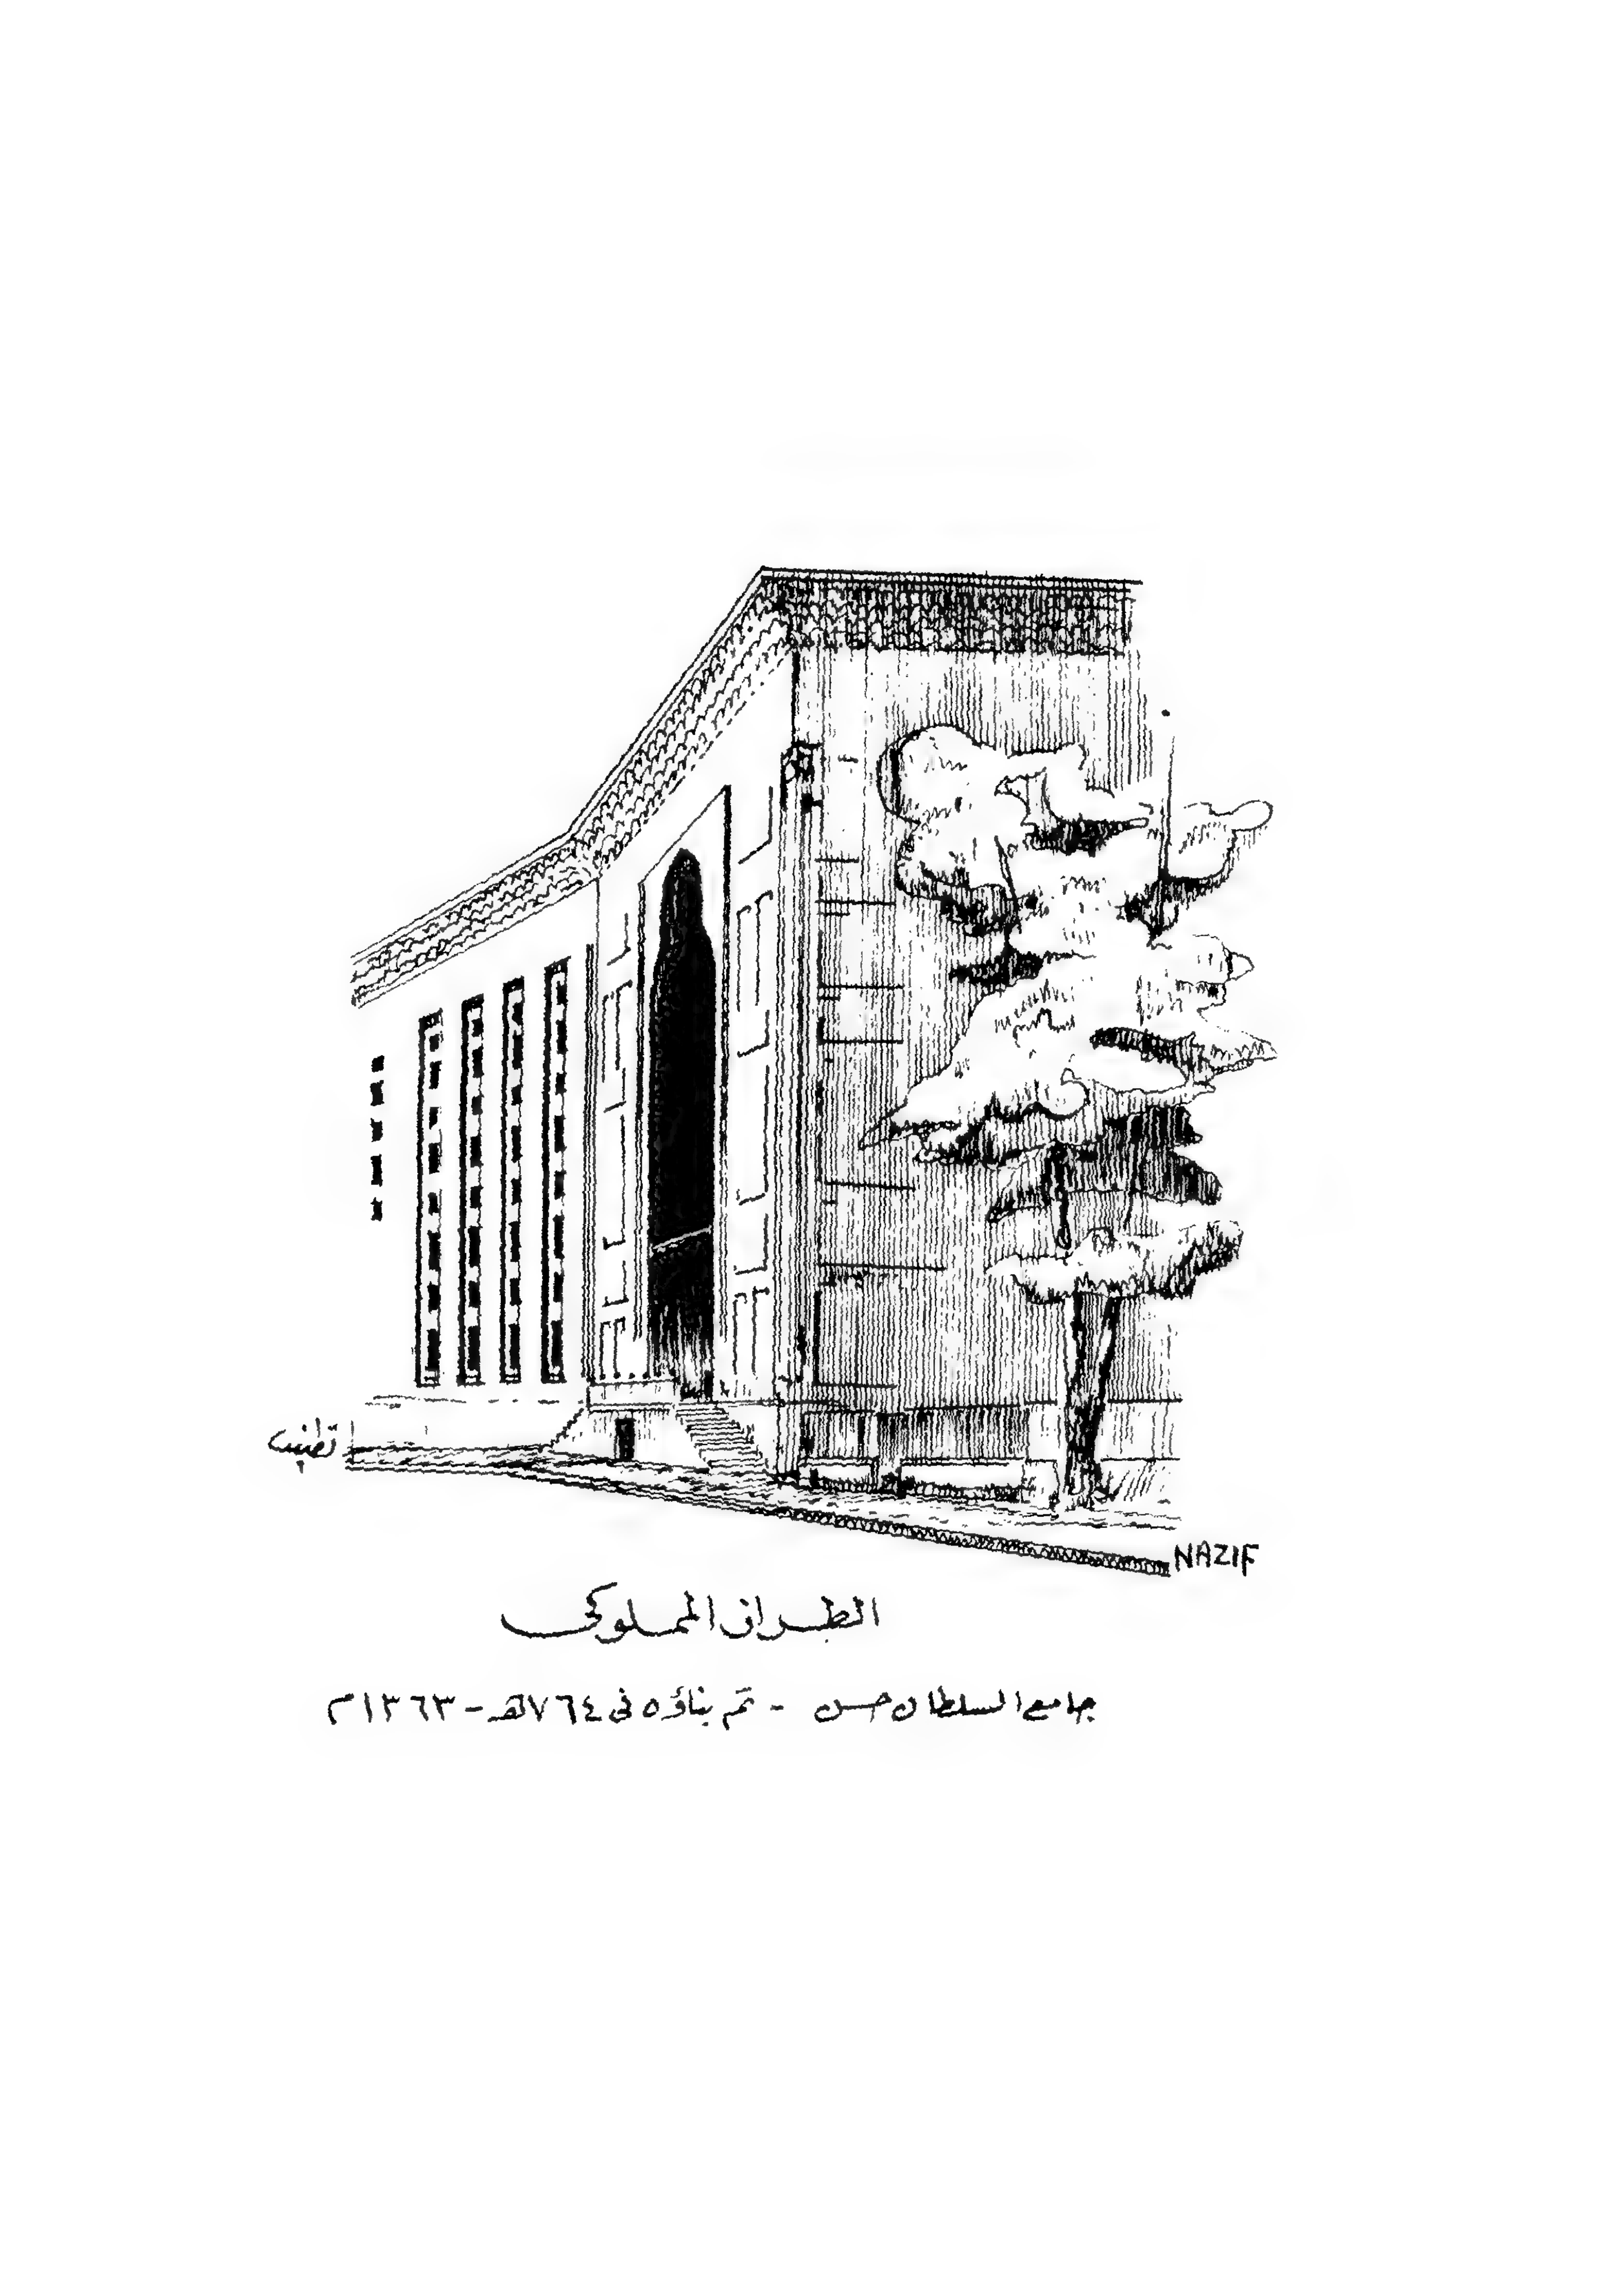 NAZIF
الطراز المملوكى
جامع السلطان حسن - تم بناؤه فى ٧٦٤هـ - ١٣٦٣م